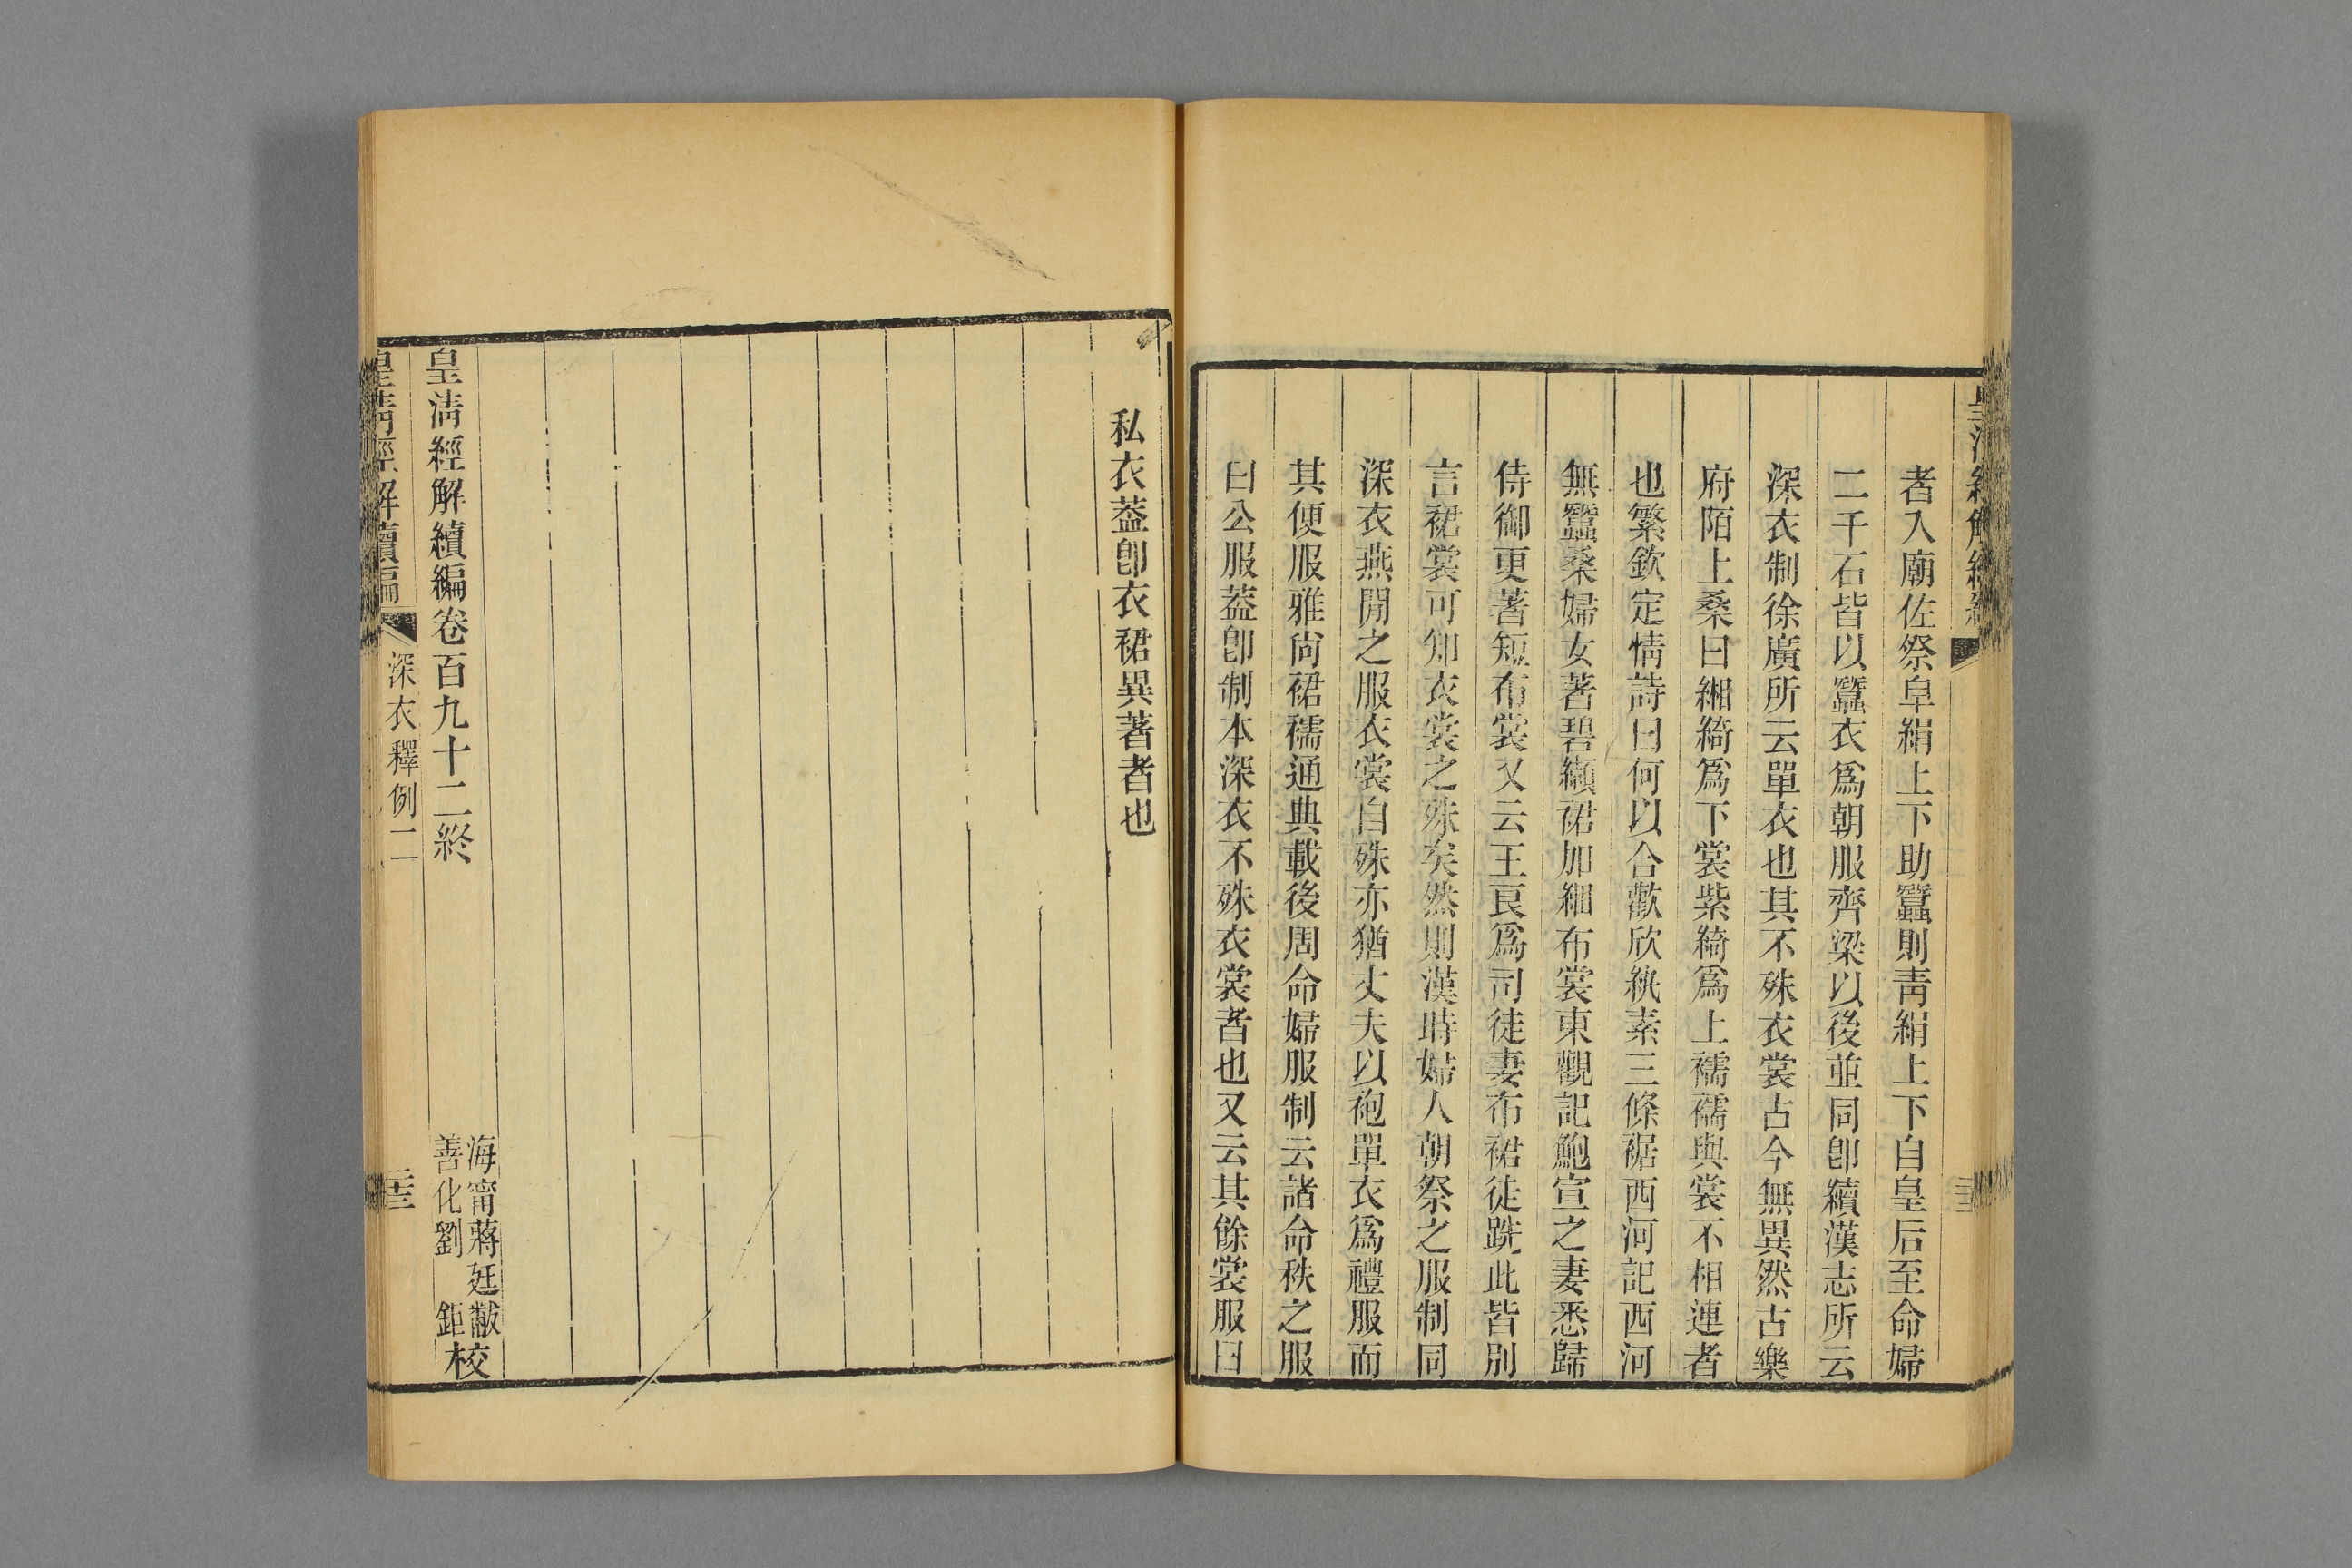 者入廟佐祭皁絹上下助蠶則靑絹上下自皇后至命婦
二千石皆以蠶衣爲朝服齊梁以後並同卽續漢志所云
深衣制徐廣所云單衣也其不殊衣裳古今無異然古樂
府陌上桑曰緗綺爲下裳紫綺爲上襦襦與裳不相連者
也繁欽定情詩曰何以合歡欣紈素三條裾西河記西河
無蠶桑婦女著碧纈裙加細布裳東觀記鮑宣之妻悉歸
侍御更著短布裳又云王良爲司徒妻布裙徒跣此皆別
言裙裳可知衣裳之殊矣然則漢時婦人朝祭之服制同
深衣燕閒之服衣裳自殊亦猶丈夫以袍單衣爲禮服而
其便服雅尚裙襦通典載後周命婦服制云諸命秩之服
曰公服葢卽制本深衣不殊衣裳者也又云其餘裳服曰
私衣葢卽衣裙異著者也
皇淸經解續編卷百九十二終
海甯蔣廷黻
善化劉鉅校
皇淸經解續編
深衣釋例二